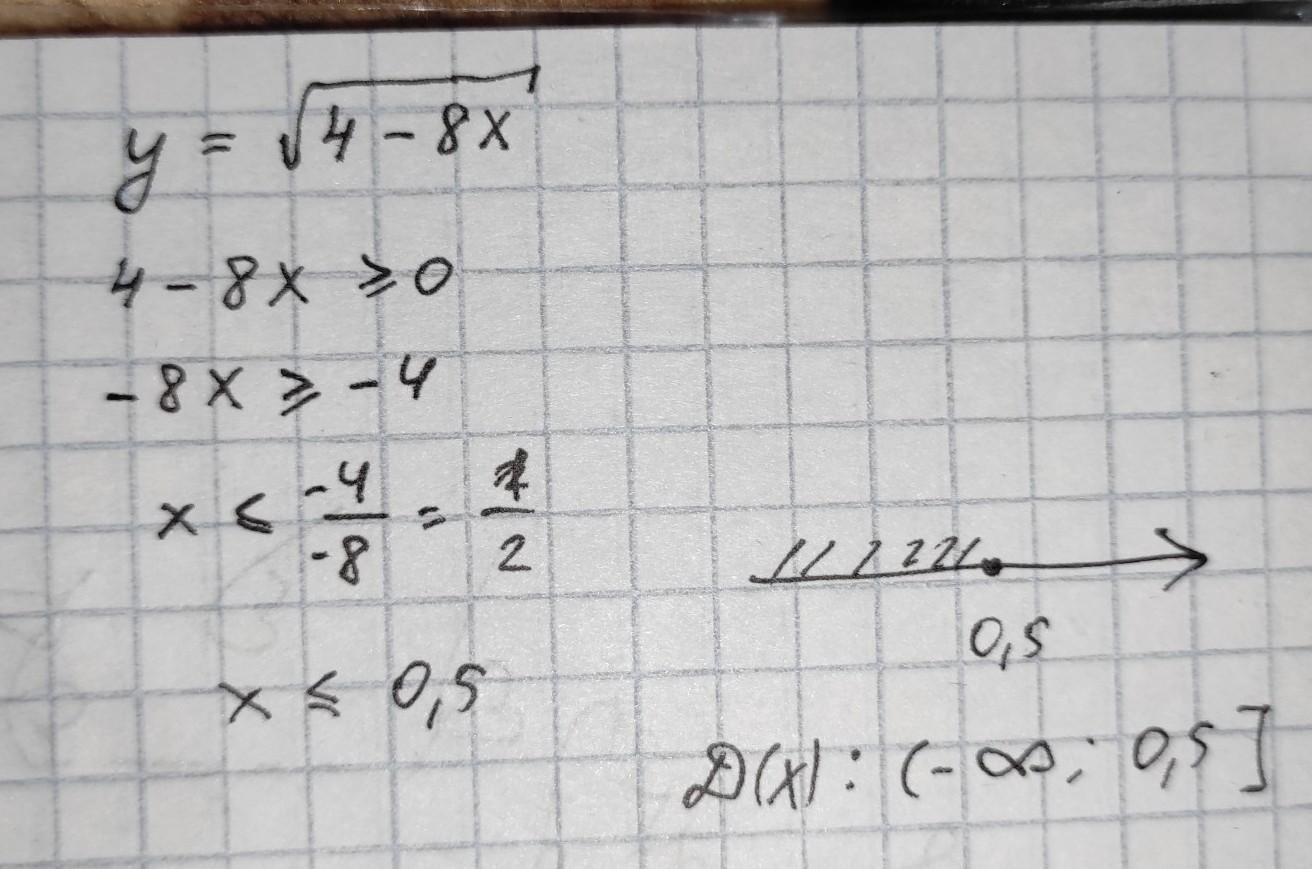 y = √(4 - 8x)
4 - 8x ⩾ 0
-8x ⩾ -4
x ⩽ -4/-8 = 1/2
x ⩽ 0,5
0,5
D(x): (-∞; 0,5]